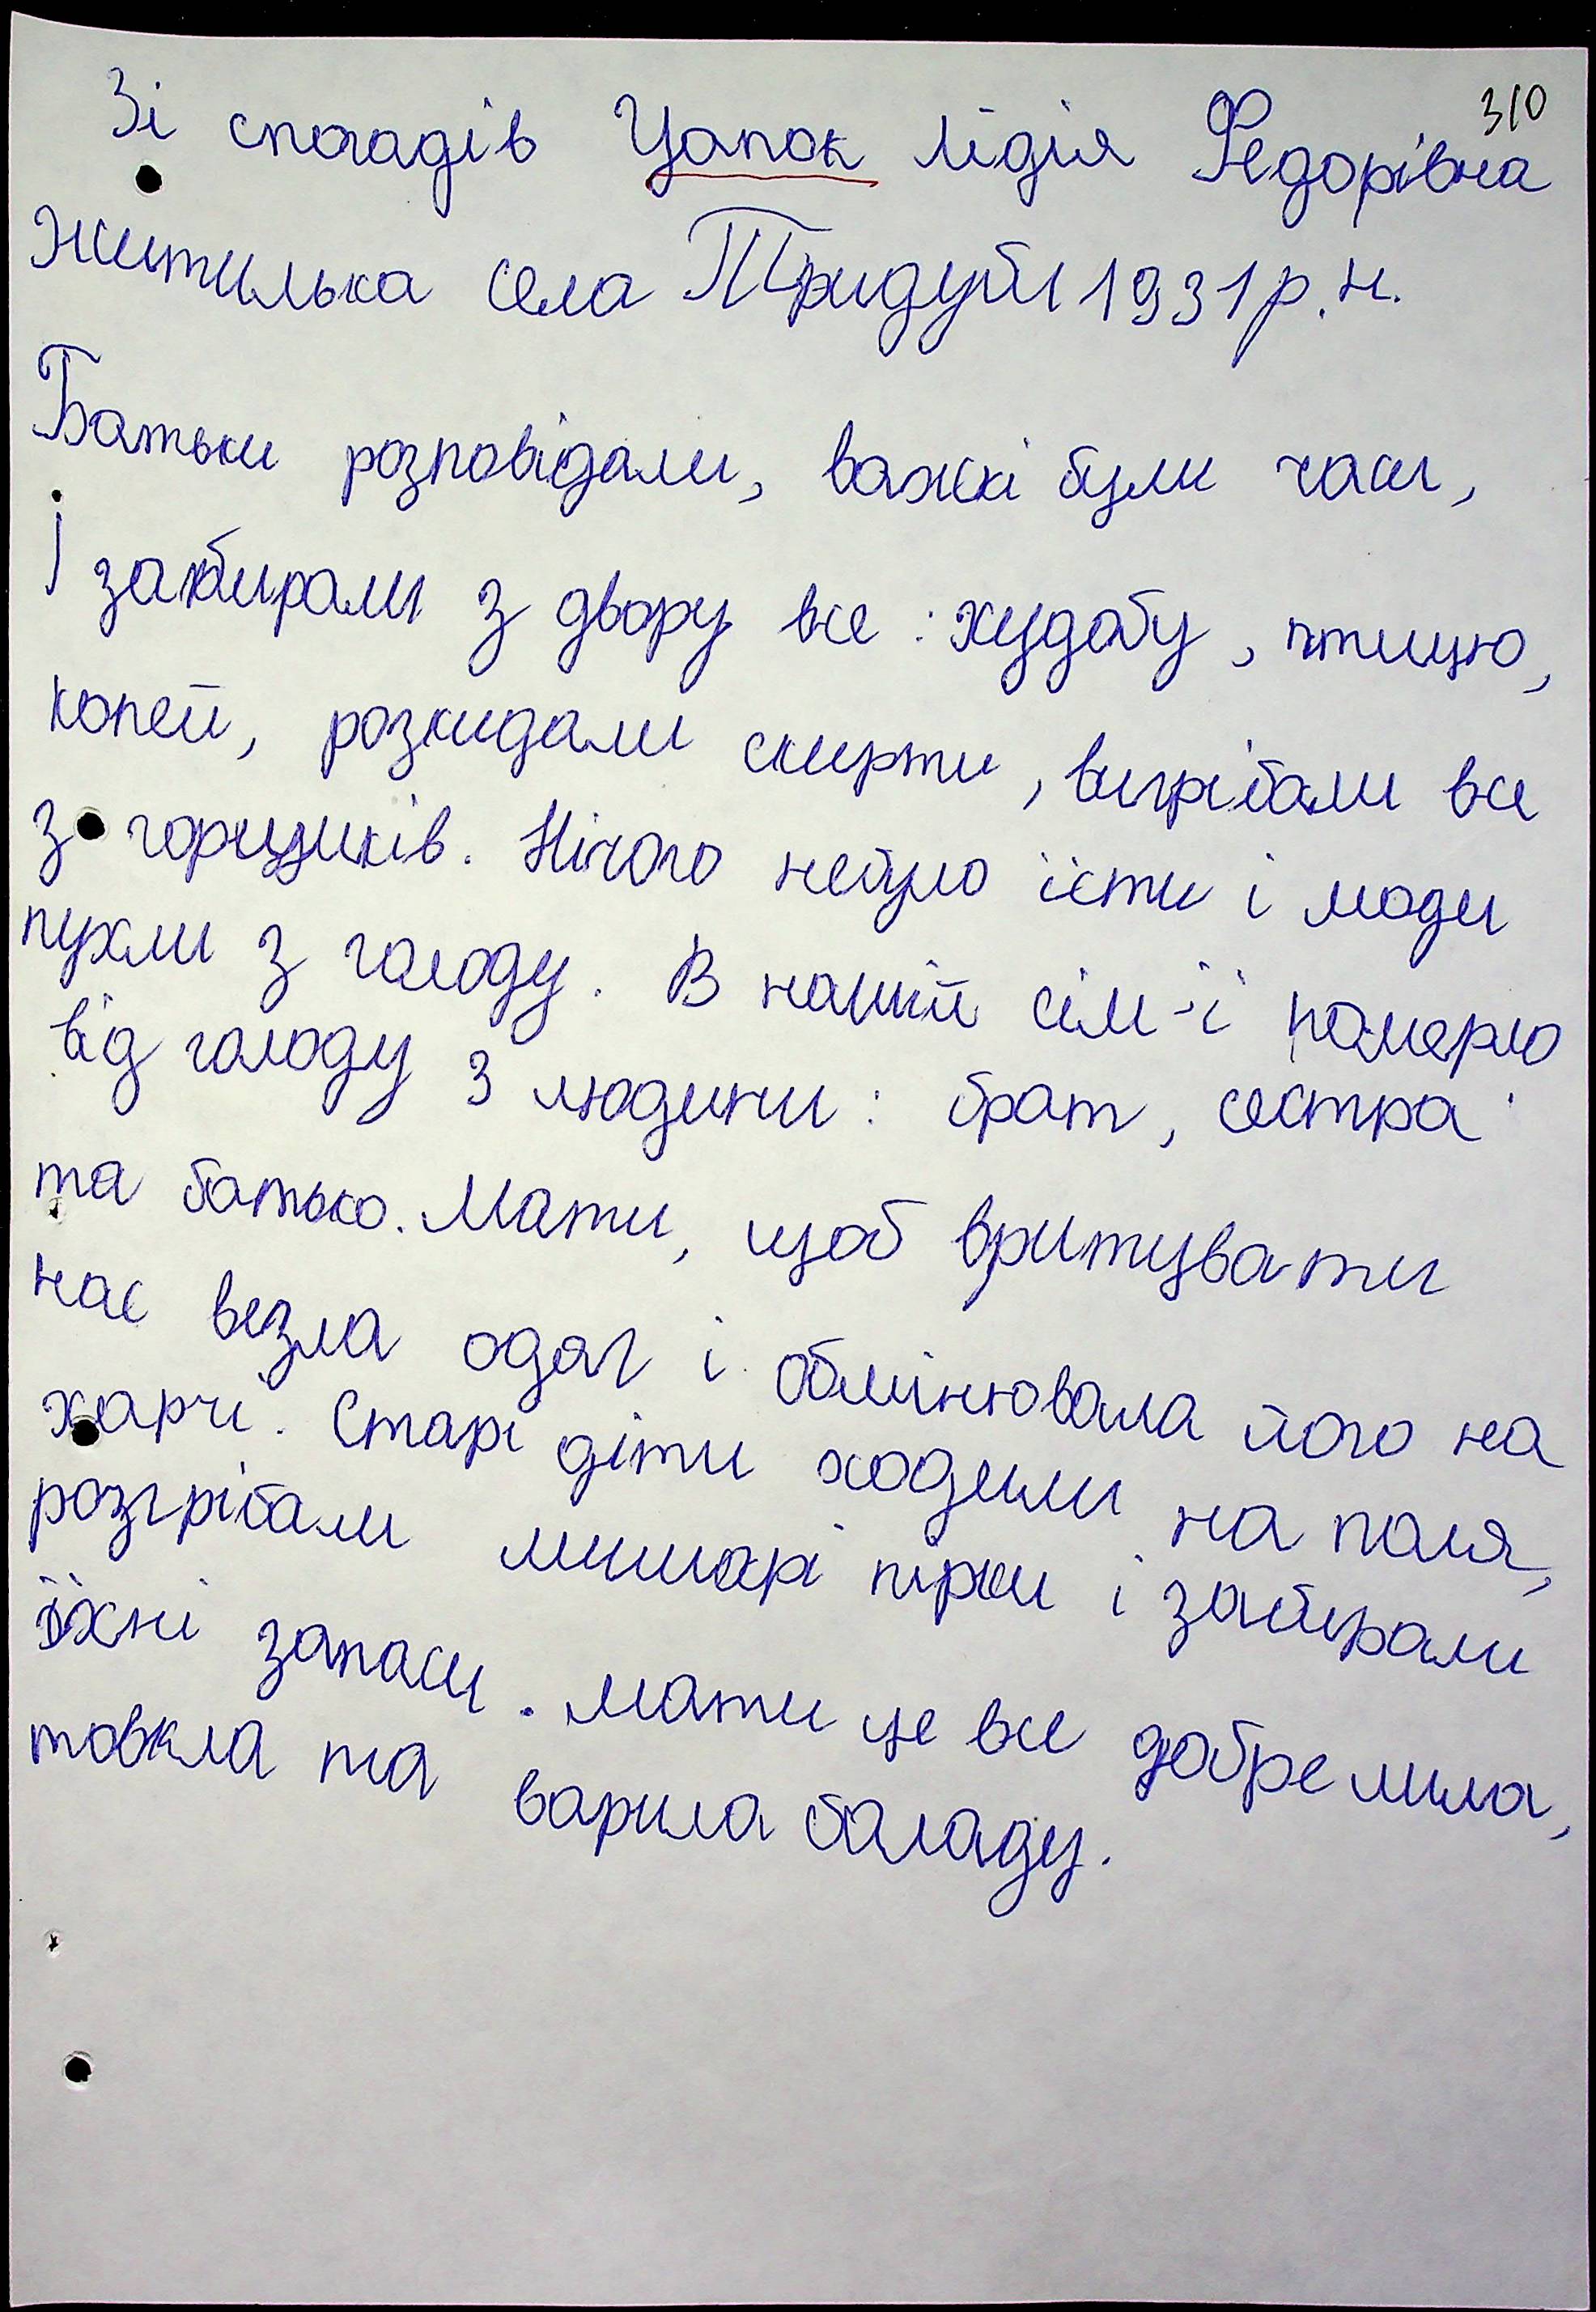 310
Зі спогадів Цапок Лідія Федорівна
Жителька села Тридуби 1931 р.н.
Батьки розповідали, важкі були часи,
І забирали з двору все: худобу, птицю,
коней, розкидали скирти, вигрібали все
з горщиків. Нічого небуло їсти і люди
пухли з голоду. В нашій сім-ї померло
від голоду 3 людини: брат, сестра
та батько. Мати, щоб врятувати
нас везла одяг і обмінювала його на
харчі. Старі діти ходили на поля,
розгрібали мишарі нірки і забирали
їхні запаси. Мати це все добре мила,
товкла та варила баладу.